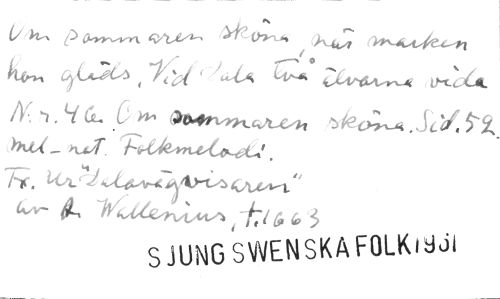 Om sommaren sköna, när marken
hon gläds, Vid Dala två älvarna vida
N:r. 46. Om sommaren sköna. Sid. 52.
mel-not. Folkmelodi.
Fr. Ur "Dalavägvisaren"
av A. Wallenius, †.1663
SJUNG SWENSKA FOLK 1931